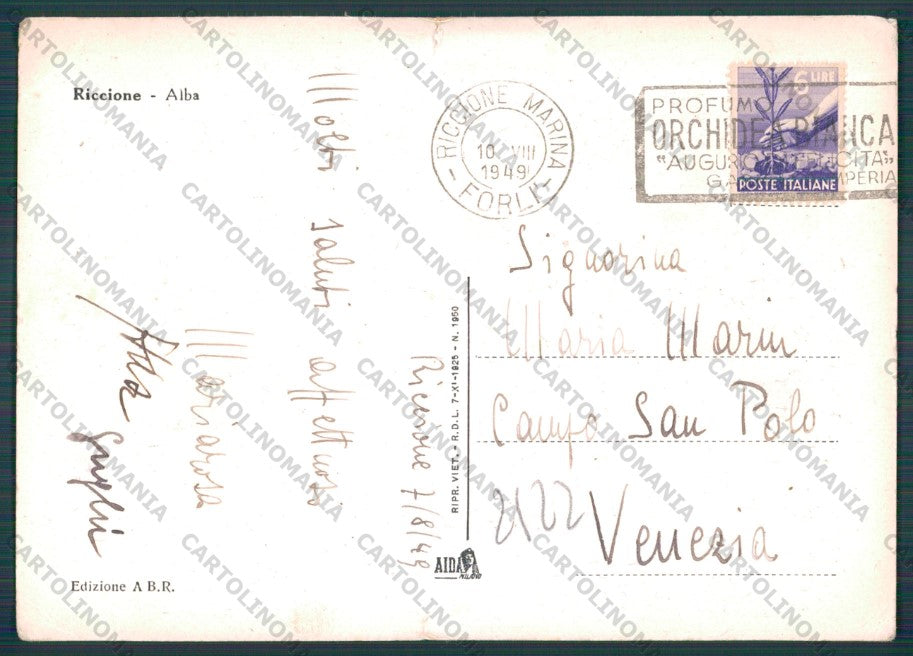 Riccione - Alba
Molti saluti affettuosi
Mariarosa
Riccione 7/8/49
Edizione A B.R.
RIPR. VIET. - R.D.L. 7-XI-1925 - N. 1950
AIDA
MILANO
RICCIONE MARINA
10 VIII
1949
- FORLI -
PROFUMO
ORCHIDEA BIANCA
"AUGURIO DI FELICITA"
IMPERIA
6 LIRE
POSTE ITALIANE
Signorina
Maria Marin
Campo San Polo
2122 Venezia
CARTOLINOMANIA